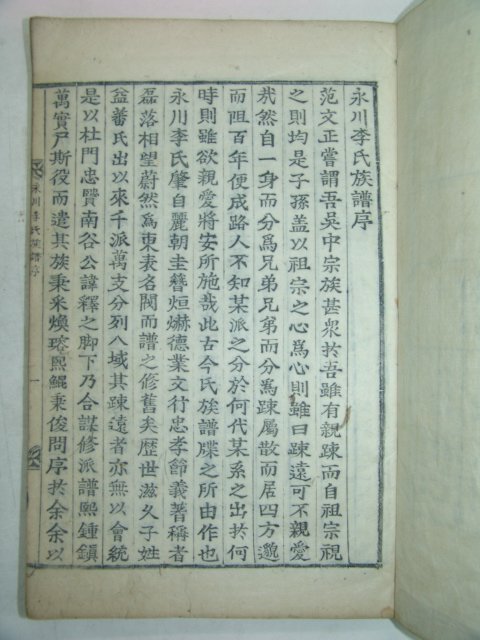 永川李氏族譜序
范文正嘗謂吾吳中宗族甚衆於吾雖有親疎而自祖宗視
之則均是子孫盖以祖宗之心爲心則雖曰疎遠可不親愛
㢤然自一身而分爲兄弟兄弟而分爲疎屬散而居四方邈
而阻百年便成路人不知某派之分於何代某系之出於何
時則雖欲親愛將安所施哉此古今氏族譜牒之所由作也
永川李氏肇自麗朝圭簪烜爀德業文行忠孝節義著稱者
磊落相望蔚然爲東表名閥而譜之修舊矣歷世滋久子姓
益蕃氏出以來千派萬支分列八域其疎遠者亦無以會統
是以杜門忠賢南谷公諱釋之脚下乃合謀修派譜熙鍾鎭
萬實尸斯役而遣其族秉釆煥瑢熙鯤秉俊問序於余余以
永川李氏族譜序
一